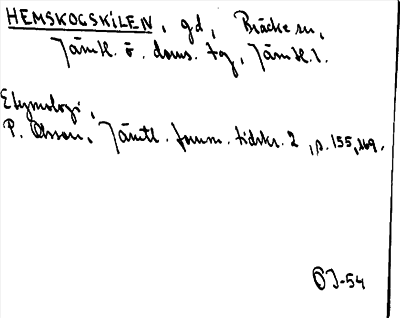 HEMSKOGSKILEN, gd, Bräcke sn,
Jämtl. ö. doms. tg, Jämtl. l.
Etymologi,
P. Olsson, Jämtl. fornm. tidskr. 2, s. 155, 169.
OJ-54